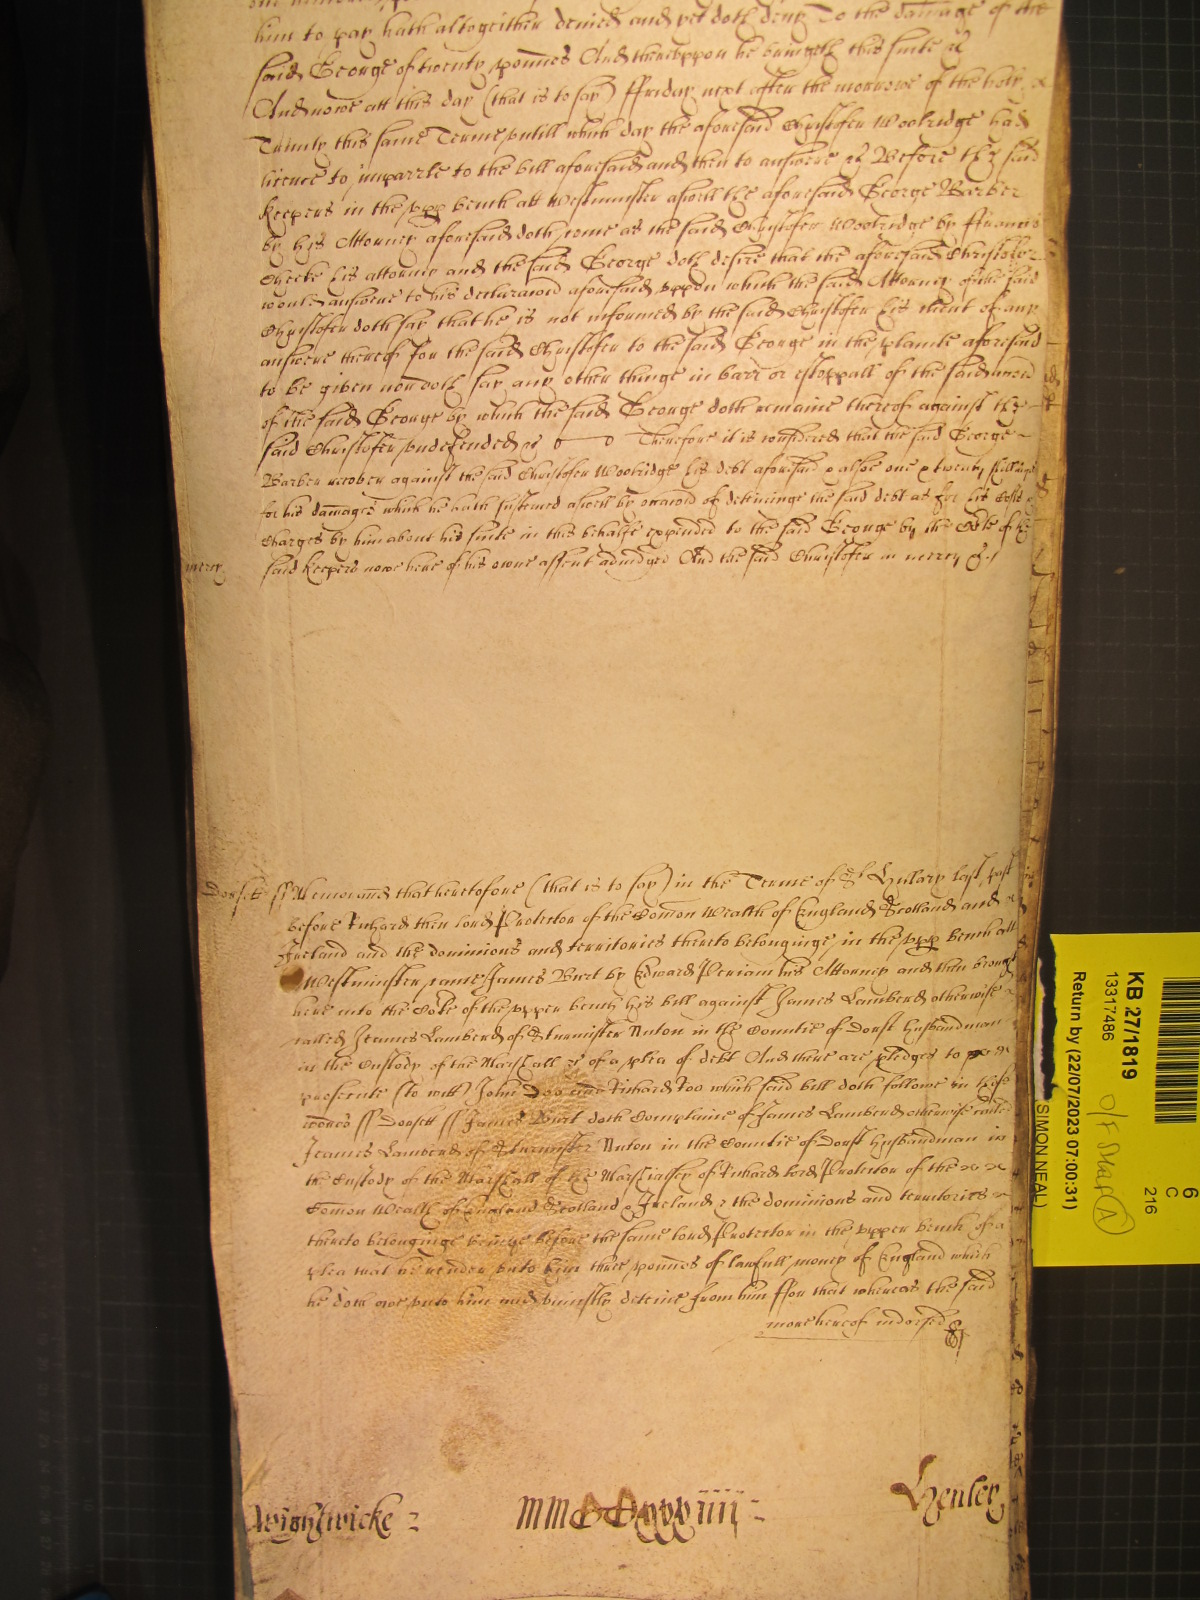 him to pay hath altogeither denied and yet doth deny To the damage of the
said George of twenty pounds And thereuppon he bringeth this suite &c
And nowe att this day (that is to say) ffriday next after the morrowe of the holy
Trinity this same Terme untill which day the aforesaid Christofer Woolridge had
licence to imparle to the bill aforesaid and then to answere &c Before the said
keepers in the upp bench att Westminster aswell the aforesaid George Barber
by his Attorney aforesaid doth come as the said Christofer Woolridge by ffrancis
Checke his attorney and the said George doth desire that the aforesaid Christofer
would answere to his declaracon aforesaid uppon which the said Attorney of the said
Christofer doth say that he is not informed by the said Christofer his client of any
answere thereof for the said Christofer to the said George in the plainte aforesaid
to be given nor doth say any other thinge in barr or estoppall of the said accon
of the said George by which the said George doth remaine thereof against the
said Christofer undefended &c Therefore it is considered that the said George
Barber recover against the said Christofer Woolridge his debt aforesaid & alsoe one & twenty shillings
for his damages which he hath susteined aswell by occacon of deteininge the said debt as for his Costs &
Charges by him about his suite in this behalfe expended to the said George by the Cote of the
mercy said keepers nowe here of his owne assent adiudged And the said Christofer in mercy &c
Dorsett ss Memorand that heretofore (that is to say) in the Terme of St Hillary last past
before Richard then lord Protector of the Comon Wealth of England Scotland and
Ireland and the dominions and territories thereto belonginge in the upp bench att
Westminster came James Burt by Edward Periam his Attorney and then brought
here into the Cote of the upper bench his bill against James Lamberd otherwise
called Jeames Lamberd of Sturmister Nuton in the Countie of Dorst husbandman
in the Custody of the Marshall &c of a plea of debt And there are pledges to
prosecute (to witt) John Doo and Richard Roo which said bill doth followe in these
words ss Dorsett ss James Burt doth Complaine of James Lamberd otherwise called
Jeames Lamberd of Sturmister Nuton in the Countie of Dorst husbandman in
the Custody of the Marshall of the Marshalsey of Richard lord Protector of the
Comon Wealth of England Scotland & Ireland & the dominions and territories
thereto belonginge beinge before the same lord Protector in the upper bench of a
plea that he render unto him three pounds of lawfull money of England which
he doth owe unto him and uniustly deteine from him ffor that whereas the said
more hereof indorsed
Wightwicke
Henley
KB 27/1819
13317486
Return by (22/07/2023 07:00:31)
SIMON NEAL)
6
C
216